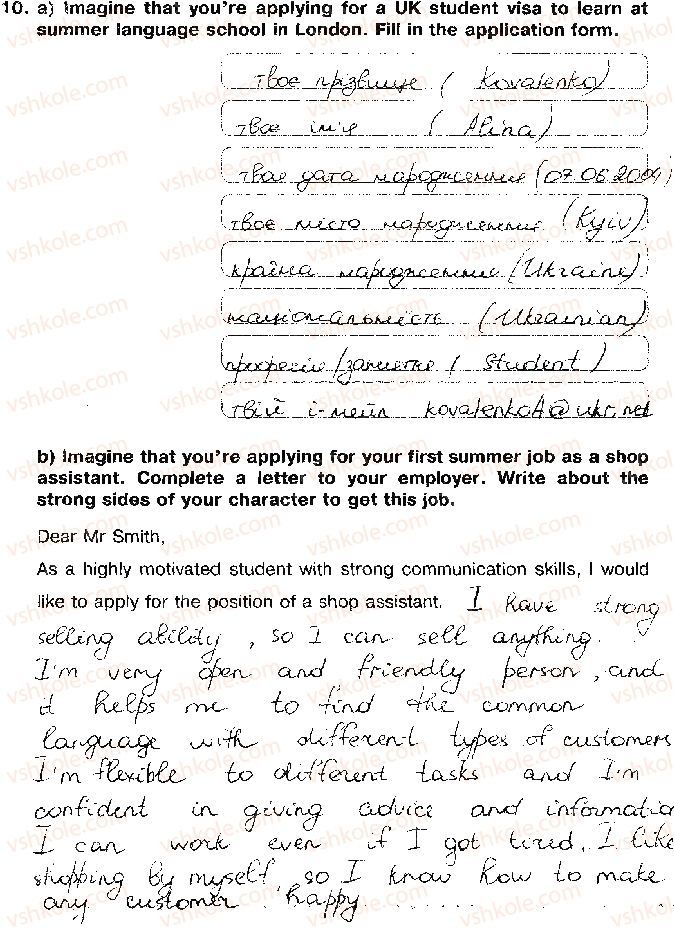 10. a) Imagine that you're applying for a UK student visa to learn at
summer language school in London. Fill in the application form.
твоє прізвище ( Kovalenko)
твоє ім'я ( Alina)
твоя дата народження (07.06.2004)
твоє місто народження (Kyiv)
країна народження (Ukraine)
національність (Ukrainian)
професія/заняття ( student )
твій і-мейл kovalenkoA@ukr.net
b) Imagine that you're applying for your first summer job as a shop
assistant. Complete a letter to your employer. Write about the
strong sides of your character to get this job.
Dear Mr Smith,
As a highly motivated student with strong communication skills, I would
like to apply for the position of a shop assistant. I have strong
selling ability, so I can sell anything.
I'm very open and friendly person, and
it helps me to find the common
language with different types of customers
I'm flexible to different tasks and I'm
confident in giving advice and informatio
I can work even if I got tired. I like
shopping by myself, so I know how to make
any customer happy.
vshkole.com